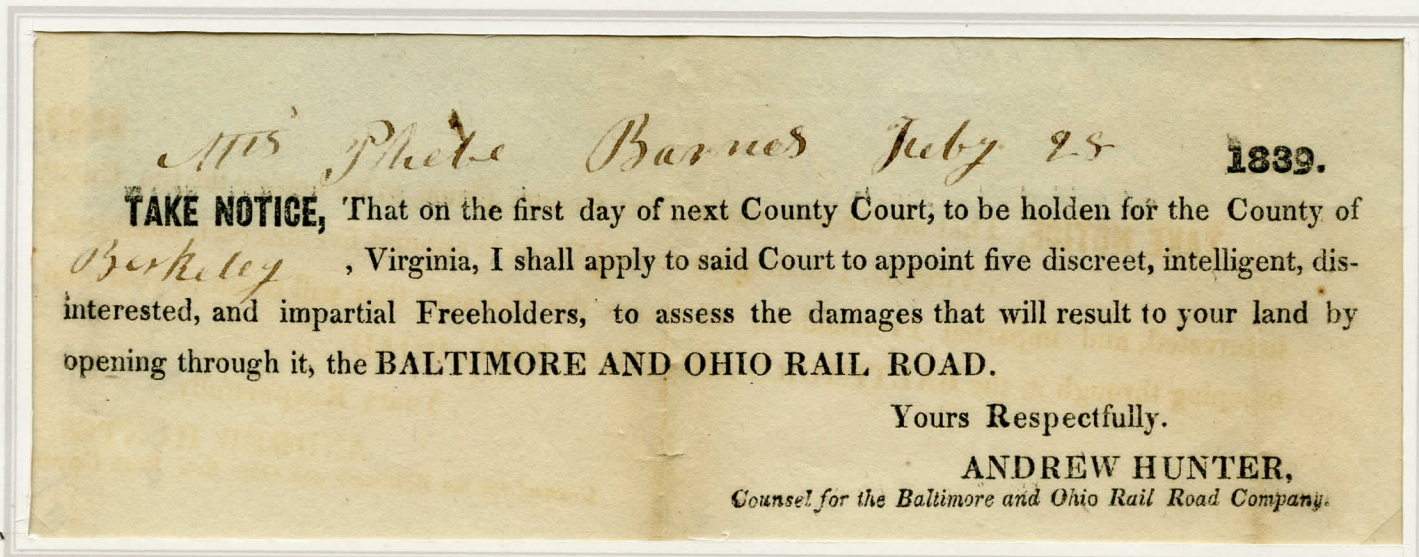 Mrs Phebe Barnes Feby 28 1839.
TAKE NOTICE, That on the first day of next County Court, to be holden for the County of
Berkeley , Virginia, I shall apply to said Court to appoint five discreet, intelligent, dis-
interested, and impartial Freeholders, to assess the damages that will result to your land by
opening through it, the BALTIMORE AND OHIO RAIL ROAD.
Yours Respectfully.
ANDREW HUNTER,
Counsel for the Baltimore and Ohio Rail Road Company.